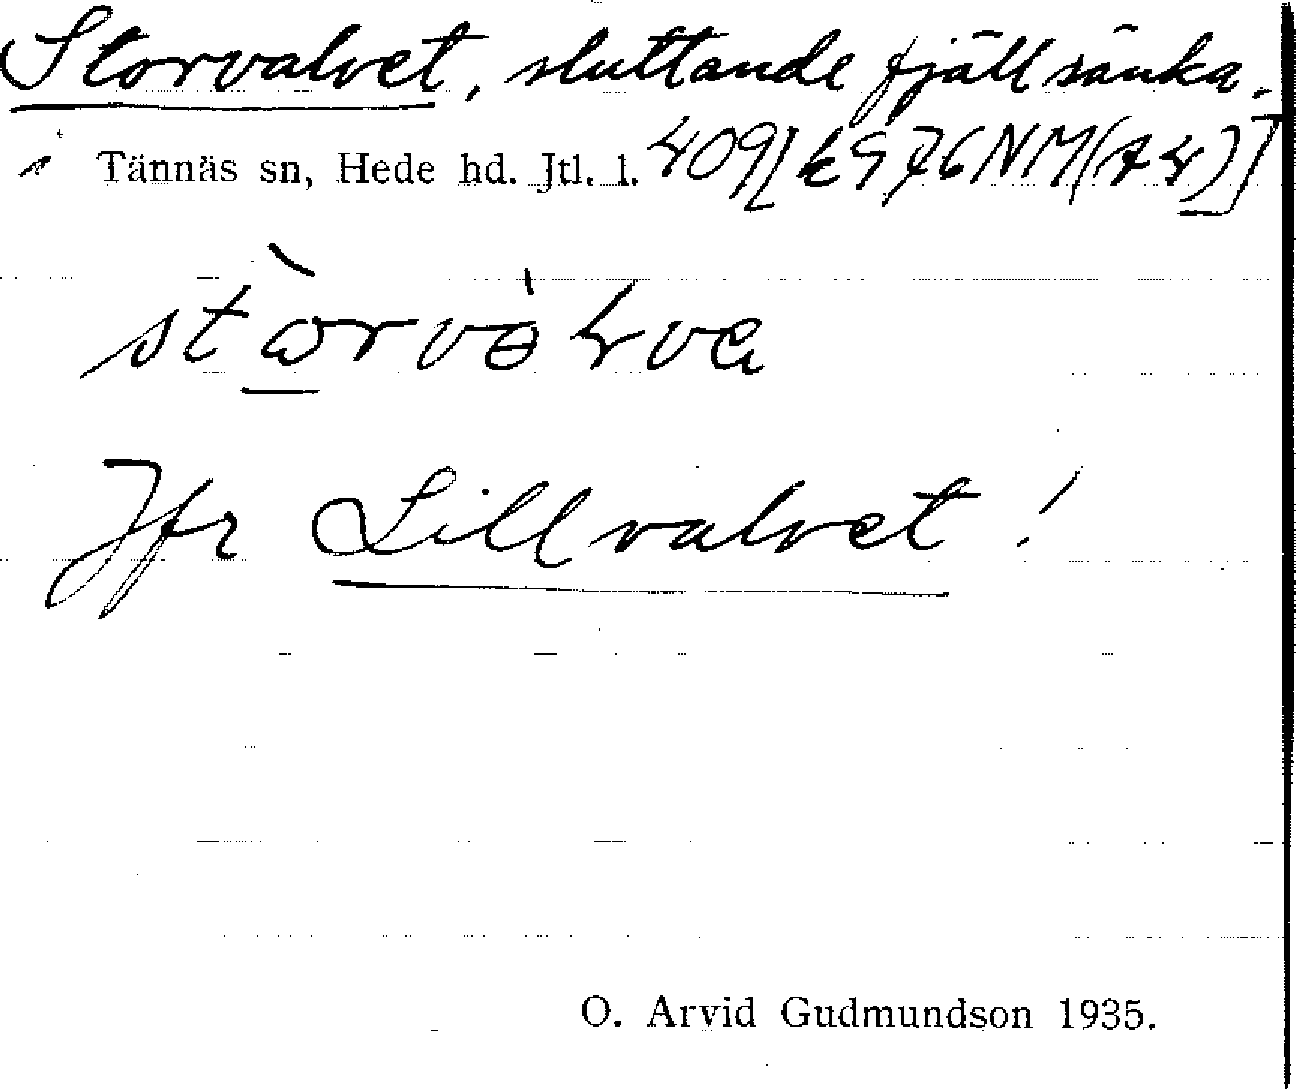 Storvalvet, sluttande fjällsänka.
i Tännäs sn, Hede hd. Jtl. l. 409
Jfr Lillvalvet!
O. Arvid Gudmundson 1935.